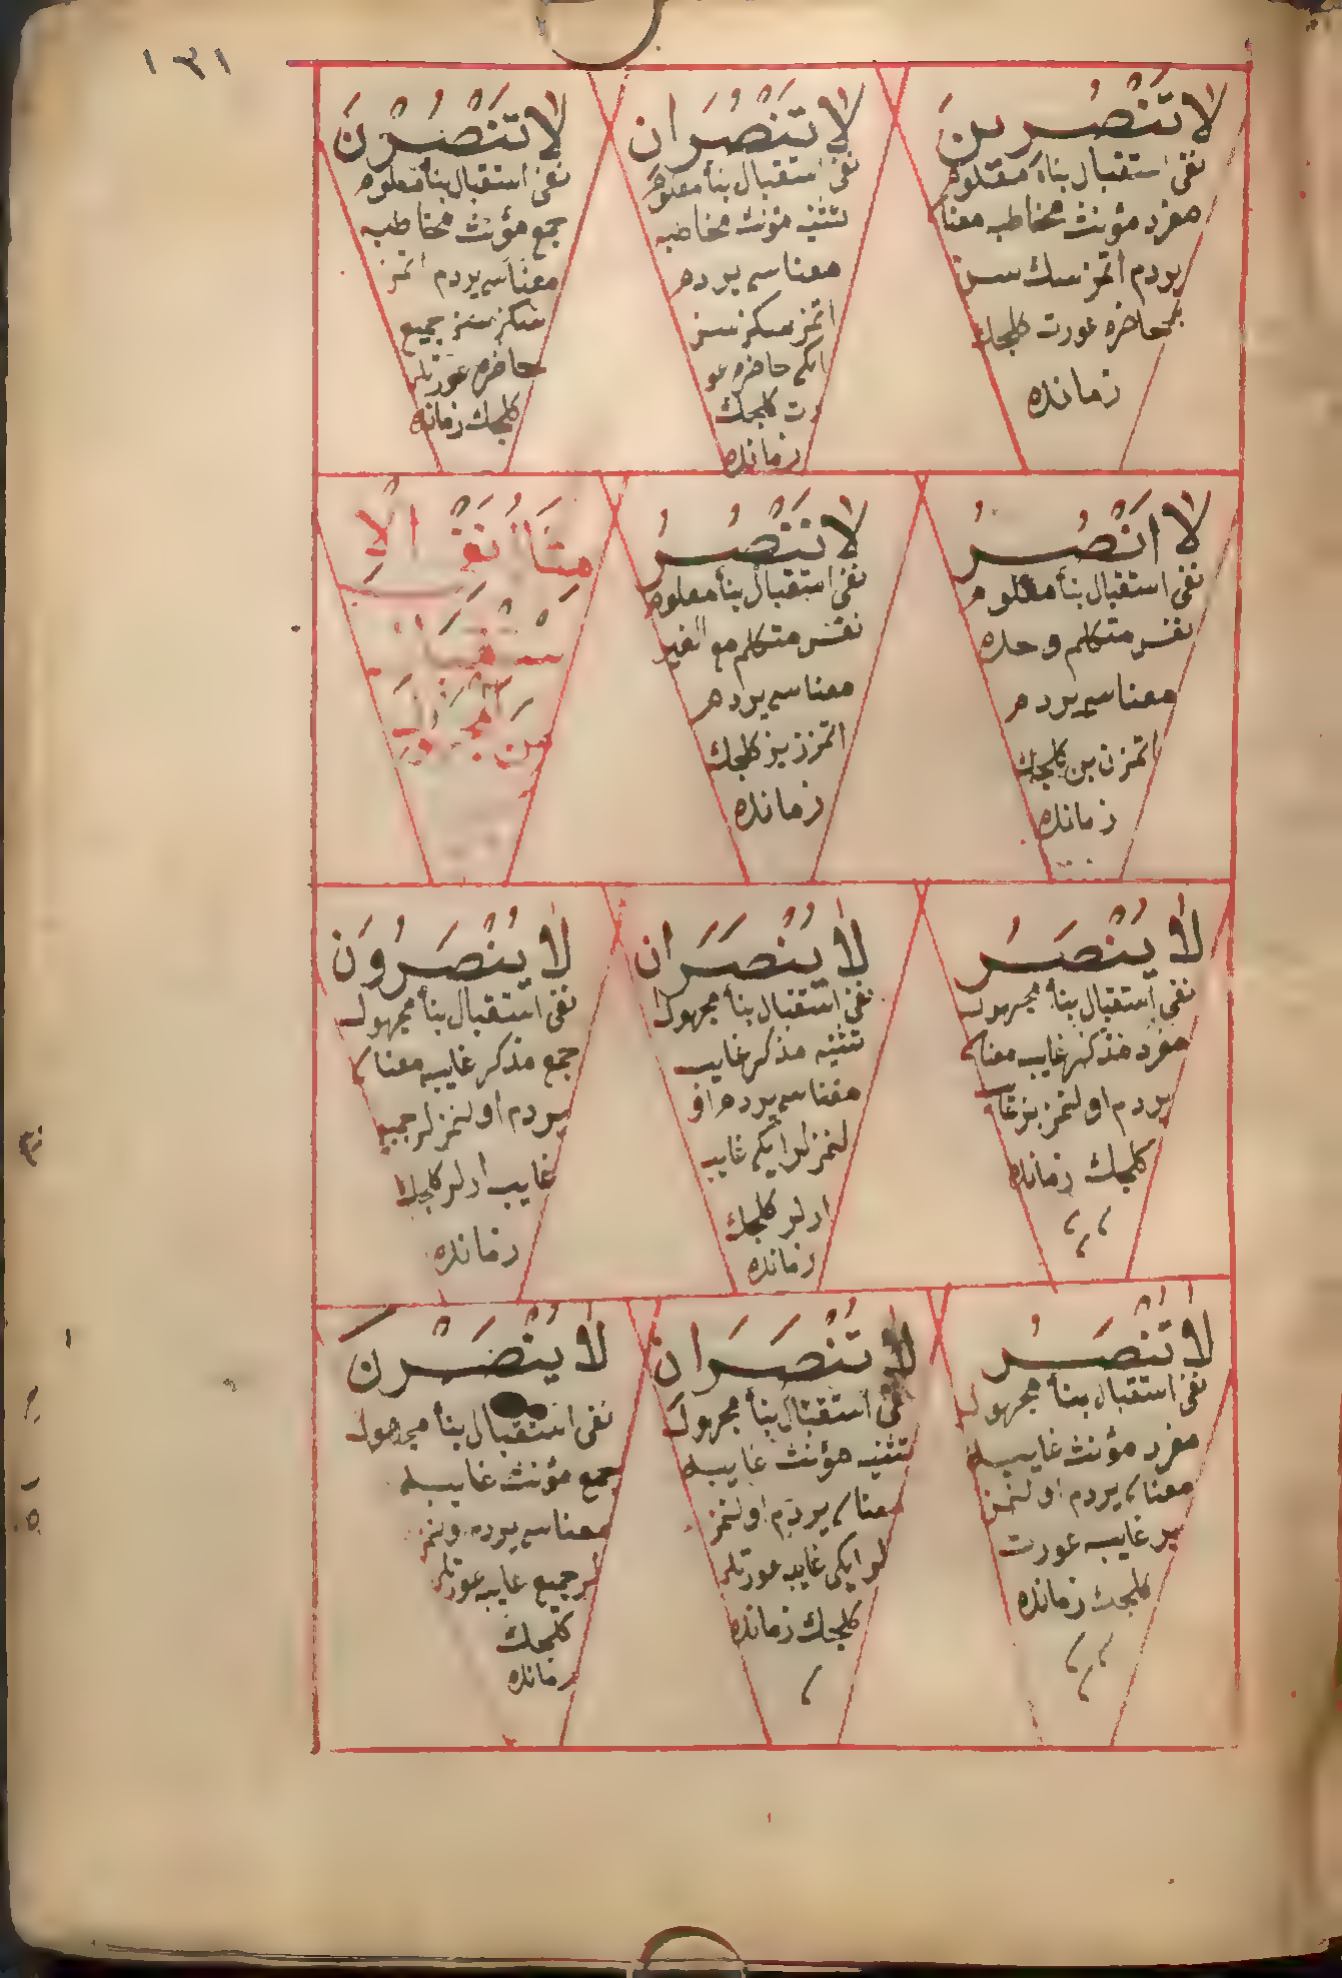 ١٣١
لا تَنْصُرِينَ
نفى استقبال بناء معلوم
مفرد مؤنث مخاطبه معناسى
يردم اتمز سك سن
بر حاضره عورت كلجك
زمانده
لا تَنْصُرَانِ
نفى استقبال بنأ معلوم
تثنيه مؤنث مخاطبه
معناسى يردم
اتمز سكز سز
ايكى حاضره عو
رت كلجك
زمانده
لا تَنْصُرْنَ
نفى استقبال بنأ معلوم
جمع مؤنث مخاطبه
معناسى يردم اتمز
سكز سز جميع
حاضره عورتلر
كلجك زمانده
لا اَنْصُرُ
نفى استقبال بنأ معلوم
نفس متكلم وحده
معناسى يردم
اتمزن بن كلجك
زمانده
لا نَنْصُرُ
نفى استقبال بنأ معلوم
نفس متكلم مع الغير
معناسى يردم
اتمزز بز كلجك
زمانده
لا يُنْصَرُ
نفى استقبال بنأ مجهول
مفرد مذكر غايب معناسى
يردم اولنمز بر غايب
كلجك زمانده
لا يُنْصَرَانِ
نفى استقبال بنأ مجهول
تثنيه مذكر غايب
معناسى يردم او
لنمزلر ايكى غايب
ارلر كلجك
زمانده
لا يُنْصَرُونَ
نفى استقبال بنأ مجهول
جمع مذكر غايب معناسى
يردم اولنمزلر جميع
غايب ارلر كلجك
زمانده
لا تُنْصَرُ
نفى استقبال بنأ مجهول
مفرد مؤنث غايبه
معناسى يردم اولنمز
بر غايبه عورت
كلجك زمانده
لا تُنْصَرَانِ
نفى استقبال بنأ مجهول
تثنيه مؤنث غايبه
معناسى يردم اولنمز
لر ايكى غايبه عورتلر
كلجك زمانده
لا يُنْصَرْنَ
نفى استقبال بنأ مجهول
جمع مؤنث غايبه
معناسى يردم اولنمز
لر جميع غايبه عورتلر
كلجك
زمانده